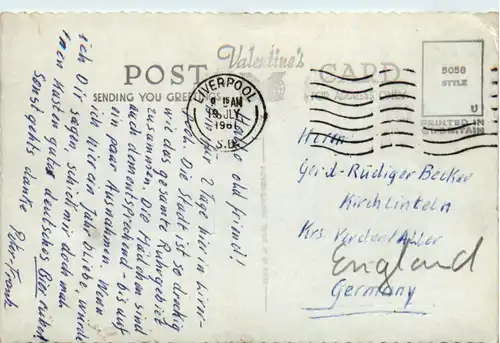 Valentine's
POST CARD
SENDING YOU GREETINGS
FOR ADDRESS ONLY
5058
STYLE
U
PRINTED IN
GT. BRITAIN
LIVERPOOL
9 15 AM
19 JLY
196
old friend!
2 Tage hier in Liver-
pool. Die Stadt ist so dreckig
wie das gesamte Ruhrgebiet
zusammen. Die Mädchen sind
auch dementsprechend - bis auf
ein paar Ausnahmen. Wenn
ich hier ein Jahr bliebe, würde
ich Dir sagen, schick mir doch mal
deutsches Bier rüber.
Sonst gehts danke
Peter-Frank
Herrn
Gerd-Rüdiger Becker
Kirchlinteln
Krs. Verden/Aller
England
Germany